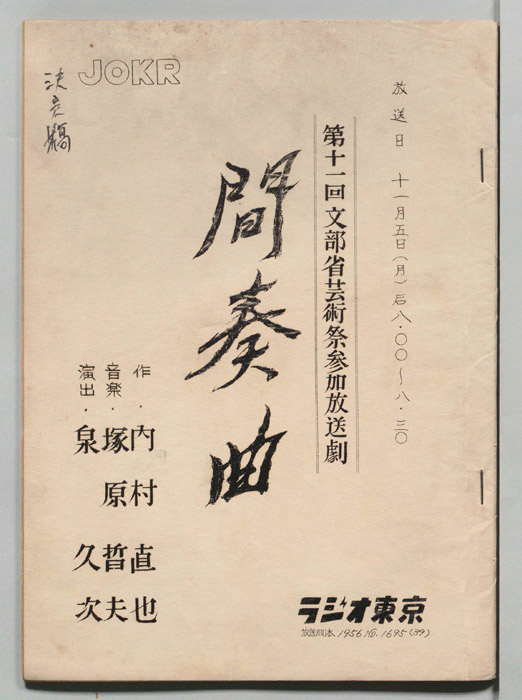 JOKR
決定稿
放送日 十一月五日(月)后八・〇〇～八・三〇
第十一回文部省芸術祭参加放送劇
間奏曲
作・内村直也
音楽・塚原哲夫
演出・泉久次
ラジオ東京
放送台本 1956 No. 1695 (39)